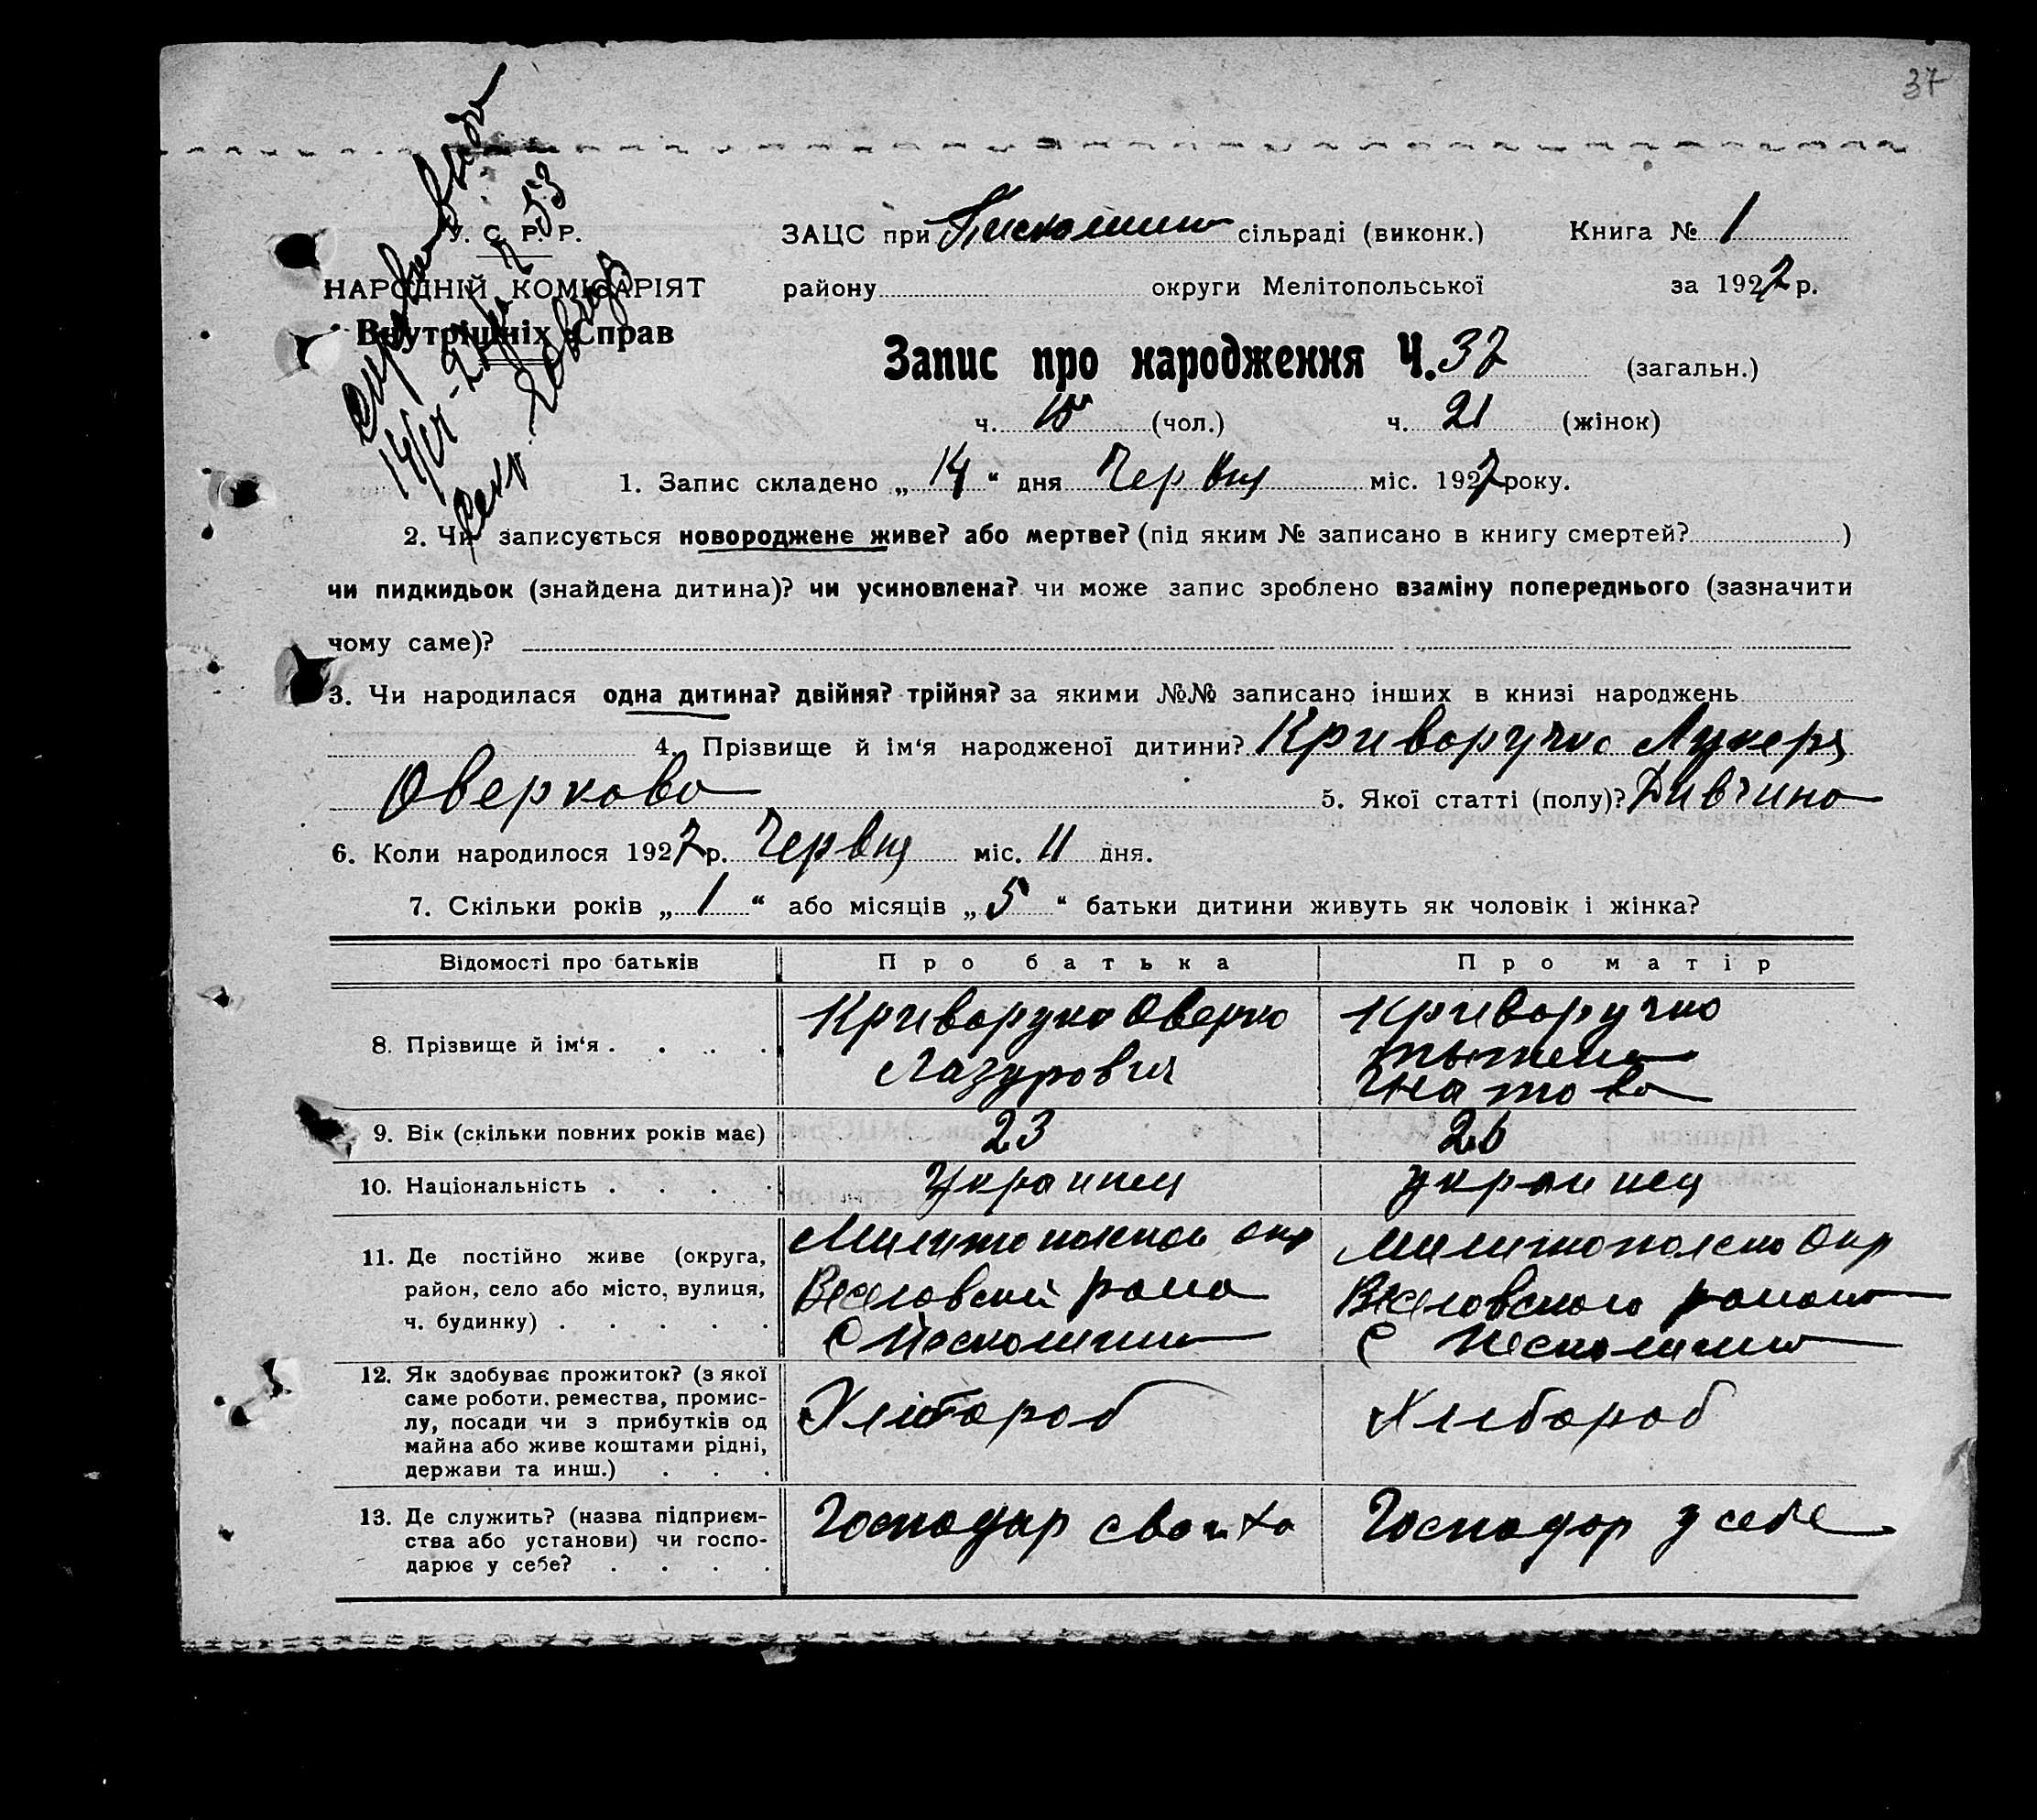 37
У. С. Р. Р.
НАРОДНІЙ КОМІСАРІЯТ
Внутрішніх Справ
ЗАЦС при Пискошино сільраді (виконк.) Книга № 1
району округи Мелітопольської за 1927 р.
Запис про народження Ч. 37 (загальн.)
ч. 15 (чол.) ч. 21 (жінок)
1. Запис складено „ 14 “ дня Червця міс. 1927 року.
2. Чи записується новороджене живе? або мертве? (під яким № записано в книгу смертей? )
чи пидкидьок (знайдена дитина)? чи усиновлена? чи може запис зроблено взаміну попереднього (зазначити
чому саме)?
3. Чи народилася одна дитина? двійня? трійня? за якими №№ записано інших в книзі народжень
4. Прізвище й ім‘я народженої дитини? Криворучко Лукеря
Оверкова 5. Якої статті (полу)? Дивчина
6. Коли народилося 1927 р. Червця міс. 11 дня.
7. Скільки років „ 1 “ або місяців „ 5 “ батьки дитини живуть як чоловік і жінка?
Відомості про батьків Про батька Про матір
8. Прізвище й ім‘я . . . . Криворучко Оверко Криворучко
Лазурович
Гнатова
9. Вік (скільки повних років має) 23 26
10. Національність . . . . Украинец украинец
11. Де постійно живе (округа, Милитопольско окр Милитопольско Окр
район, село або місто, вулиця, Веселовский рона Веселовского
ч. будинку) . . . . . С Пескошино С Пескошино
12. Як здобуває прожиток? (з якої
саме роботи, ремества, промис- Хлібороб Хлибороб
лу, посади чи з прибутків од
майна або живе коштами рідні,
держави та инш.) . . .
13. Де служить? (назва підприєм- Господар Господор у себе
ства або установи) чи госпо-
дарює у себе? . . . .